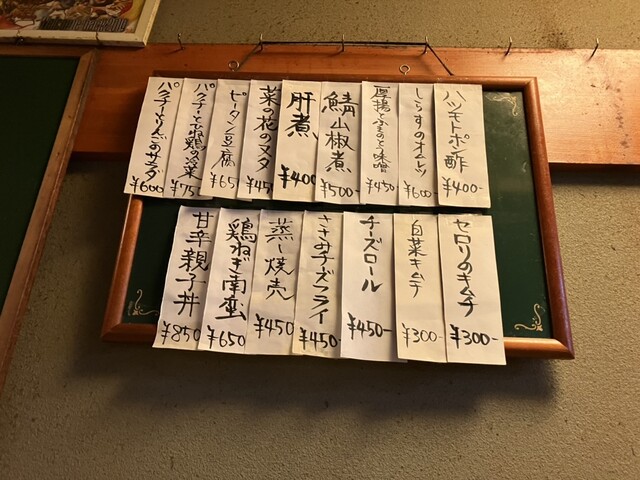 ハツモトポン酢
¥400-
しらすのオムレツ
¥600-
厚揚とふきのとう味噌
¥450
鯖山椒煮
¥500-
肝煮
¥400
菜の花のマスタ
¥450
ピータン豆腐
¥650
パクチーとゆで鶏の冷菜
¥750
パクチーとりんごのサラダ
¥600
セロリのキムチ
¥300-
白菜キムチ
¥300-
チーズロール
¥450-
ささみチーズフライ
¥450-
蒸し焼売
¥450
鶏ねぎ南蛮
¥650
甘辛親子丼
¥850